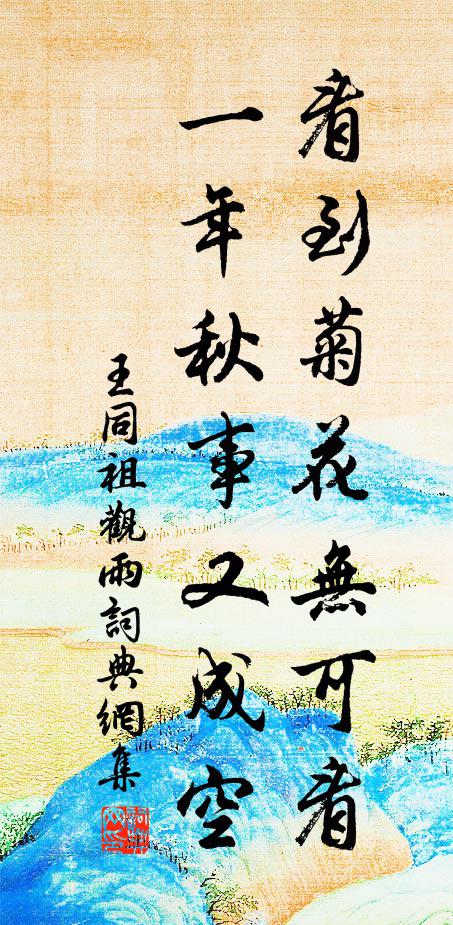 看到菊花無可看
一年秋事又成空
王同祖觀雨詞典網集